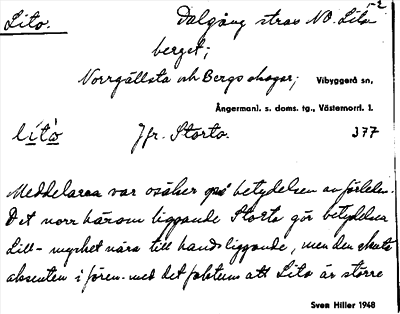 Lito. Dalgång strax NO. Lito-
berget;
Norrgällsta och Bergs skogar; Vibyggerå sn,
Ångermanl. s. doms. tg., Västernorrl. l.
lito Jfr. Storto. 377
Meddelaren var osäker på betydelsen av förleden.
Det norr härom liggande Storto gör betydelsen
Lill- mycket nära till hands liggande, men den akuta
aksenten i fören. med det faktum att Lito är större
Sven Hiller 1948